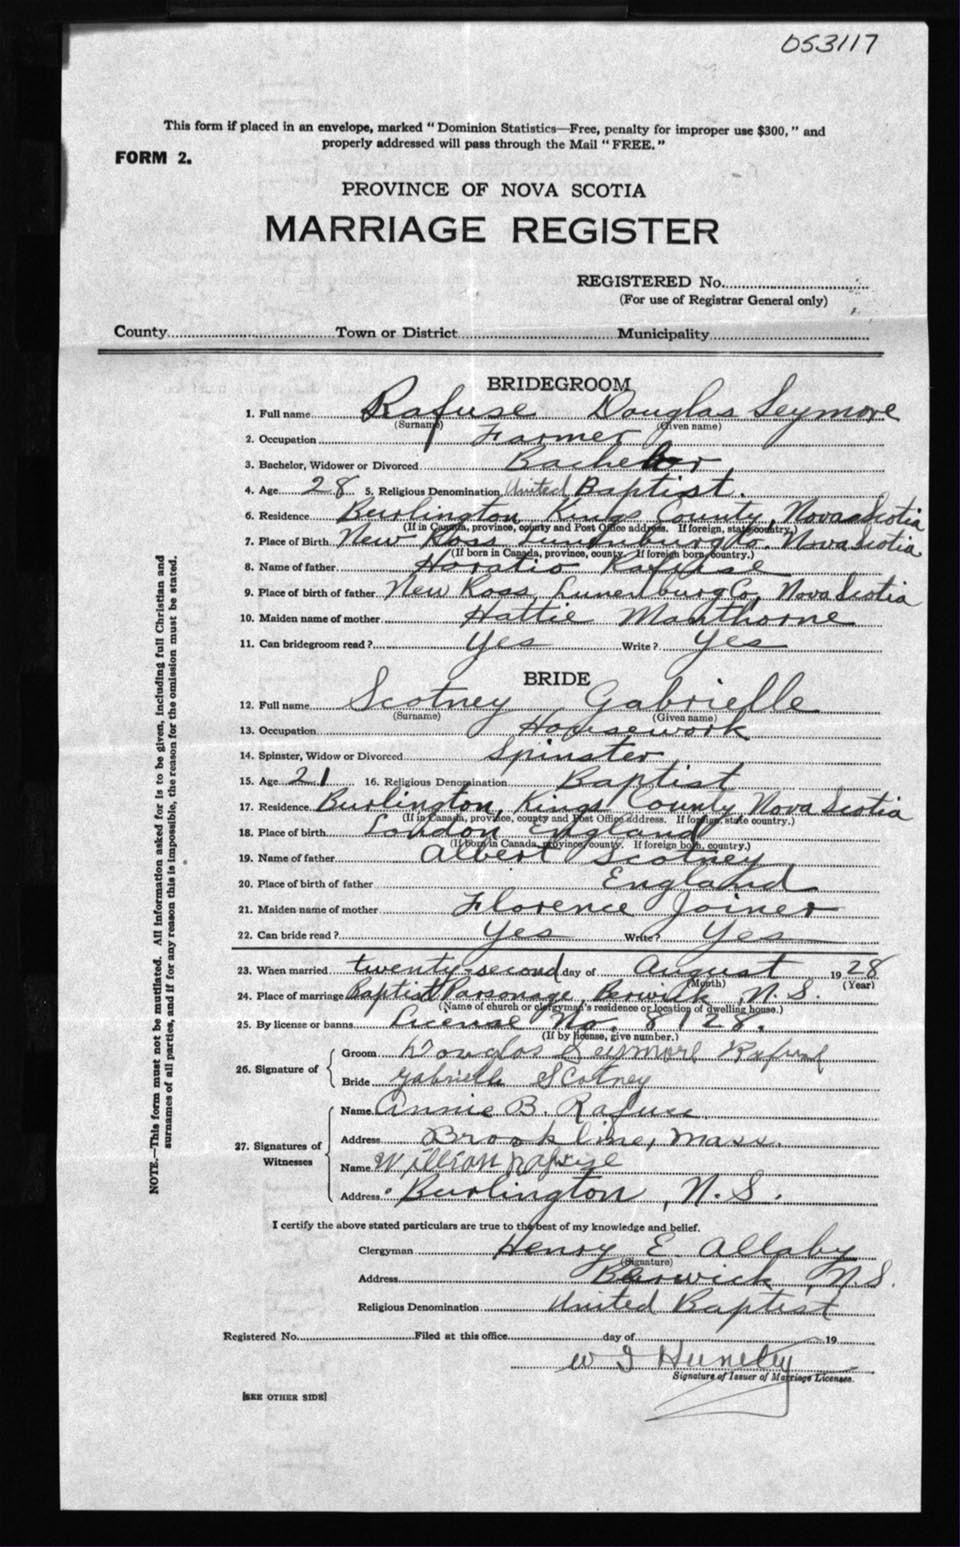 053117
This form if placed in an envelope, marked "Dominion Statistics—Free, penalty for improper use $300," and
properly addressed will pass through the Mail "FREE."
FORM 2.
PROVINCE OF NOVA SCOTIA
MARRIAGE REGISTER
REGISTERED No.
(For use of Registrar General only)
County Town or District Municipality
BRIDEGROOM
1. Full name Rafuse Douglas Seymore
(Surname) (Given name)
2. Occupation Farmer
3. Bachelor, Widower or Divorced Bachelor
4. Age 28 5. Religious Denomination United Baptist.
6. Residence Burlington Kings County, Nova Scotia
(If in Canada, province, county and Post Office address. If foreign, state country.)
7. Place of Birth New Ross Lunenburg Co. Nova Scotia
(If born in Canada, province, county. If foreign born, country.)
8. Name of father Horatio Rafuse
9. Place of birth of father New Ross, Lunenburg Co, Nova Scotia
10. Maiden name of mother Hattie Manthorne
11. Can bridegroom read? Yes Write? Yes
BRIDE
12. Full name Scotney Gabrielle
(Surname) (Given name)
13. Occupation Housework
14. Spinster, Widow or Divorced Spinster
15. Age 21 16. Religious Denomination Baptist
17. Residence Burlington, Kings County Nova Scotia
(If in Canada, province, county and Post Office address. If foreign, state country.)
18. Place of birth London England
(If born in Canada, province, county. If foreign born, country.)
19. Name of father Albert Scotney
20. Place of birth of father England
21. Maiden name of mother Florence Joiner
22. Can bride read? Yes Write? Yes
23. When married twenty-second day of August 1928
(Month) (Year)
24. Place of marriage Baptist Parsonage, Berwick, N.S.
(Name of church or clergyman's residence or location of dwelling house.)
25. By license or banns License No. 8128.
(If by license, give number.)
26. Signature of
Groom Douglas Seymore Rafuse
Bride Gabrielle Scotney
27. Signatures of Witnesses
Name Annie B. Rafuse
Address Brookline, Mass.
Name William Rafuse
Address Burlington, N.S.
I certify the above stated particulars are true to the best of my knowledge and belief.
Clergyman Henry E. Allaby
(Signature)
Address Berwick, N.S.
Religious Denomination United Baptist
Registered No. Filed at this office day of 19
Signature of Issuer of Marriage Licenses.
[SEE OTHER SIDE]
NOTE.—This form must not be mutilated. All information asked for is to be given, including full Christian and
surnames of all parties, and if for any reason this is impossible, the reason for the omission must be stated.